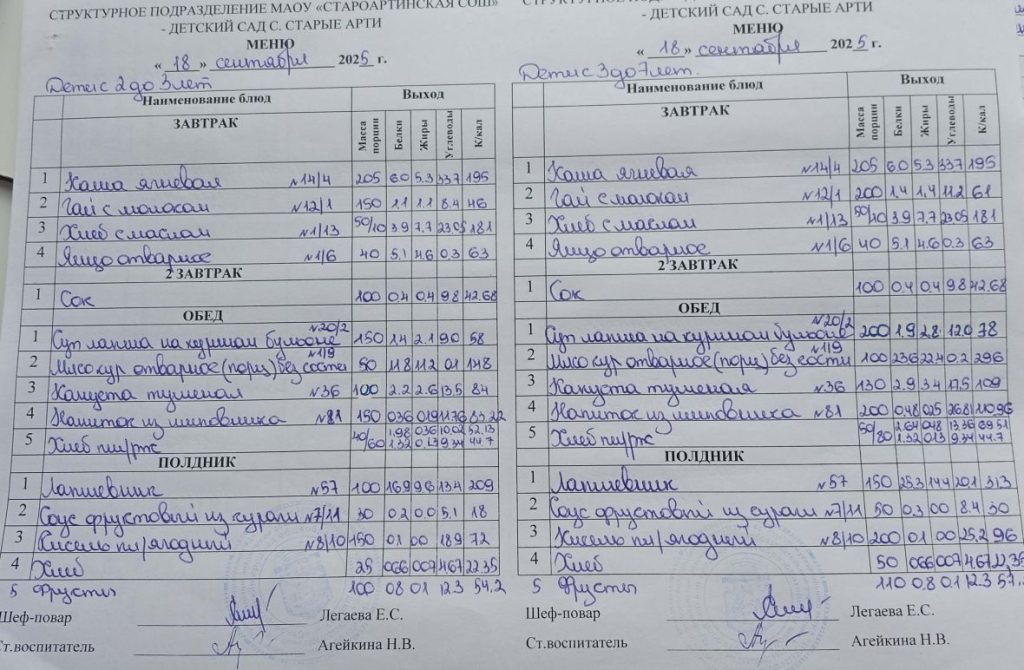 СТРУКТУРНОЕ ПОДРАЗДЕЛЕНИЕ МАОУ «СТАРОАРТИНСКАЯ СОШ»
- ДЕТСКИЙ САД С. СТАРЫЕ АРТИ
МЕНЮ
« 18 » сентября 2025 г.
Дети с 2 до 3 лет
Наименование блюд Выход
ЗАВТРАК Масса порции Белки Жиры Углеводы К/кал
1 Каша ячневая №14/4 205 6.0 5.3 33.7 195
2 Чай с молоком №12/1 150 1.1 1.1 8.4 46
3 Хлеб с маслом №1/13 50/10 3.9 7.7 23.05 181
4 Яйцо отварное №1/6 40 5.1 4.6 0.3 63
2 ЗАВТРАК
1 Сок 100 0.4 0.4 9.8 42.68
ОБЕД
1 Суп лапша на курином бульоне №20/2 150 1.4 2.1 9.0 58
2 Мясо кур отварное (порц) без кости №119 50 11.8 11.2 0.1 148
3 Капуста тушеная №36 100 2.2 2.6 13.5 84
4 Напиток из шиповника №81 150 0.36 0.19 83.22
5 Хлеб пш/рж 40/60 1.98 0.36 10.02 52.13
1.32 0.13 9.34 44.7
ПОЛДНИК
1 Лапшевник №57 100 16.9 9.6 13.4 209
2 Соус фруктовый из кураги №7/11 30 0.2 0.0 5.1 18
3 Кисель пл/ягодный №8/10 150 0.1 0.0 18.9 72
4 Хлеб 25 0.66 0.07 4.67 22.35
5 Фрукты 100 0.8 0.1 12.3 54.2
Шеф-повар Легаева Е.С.
Ст.воспитатель Агейкина Н.В.
- ДЕТСКИЙ САД С. СТАРЫЕ АРТИ
МЕНЮ
« 18 » сентября 2025 г.
Дети с 3 до 7 лет.
Наименование блюд Выход
ЗАВТРАК Масса порции Белки Жиры Углеводы К/кал
1 Каша ячневая №14/4 205 6.0 5.3 33.7 195
2 Чай с молоком №12/1 200 1.4 1.4 11.2 61
3 Хлеб с маслом №1/13 50/10 3.9 7.7 23.05 181
4 Яйцо отварное №1/6 40 5.1 4.6 0.3 63
2 ЗАВТРАК
1 Сок 100 0.4 0.4 9.8 42.68
ОБЕД
1 Суп лапша на курином бульоне №20/2 200 1.9 2.8 12.0 78
2 Мясо кур отварное (порц) без кости №119 100 23.6 22.4 0.2 296
3 Капуста тушеная №36 130 2.9 3.4 17.5 109
4 Напиток из шиповника №81 200 0.48 0.25 26.81 110.96
5 Хлеб пш/рж 50/80 2.64 0.48 13.36 69.51
1.32 0.13 9.34 44.7
ПОЛДНИК
1 Лапшевник №57 150 25.3 14.4 20.1 313
2 Соус фруктовый из кураги №7/11 50 0.3 0.0 8.4 30
3 Кисель пл/ягодный №8/10 200 0.1 0.0 25.2 96
4 Хлеб 50 0.66 0.07 4.67 22.35
5 Фрукты 110 0.8 0.1 12.3
Шеф-повар Легаева Е.С.
Ст.воспитатель Агейкина Н.В.